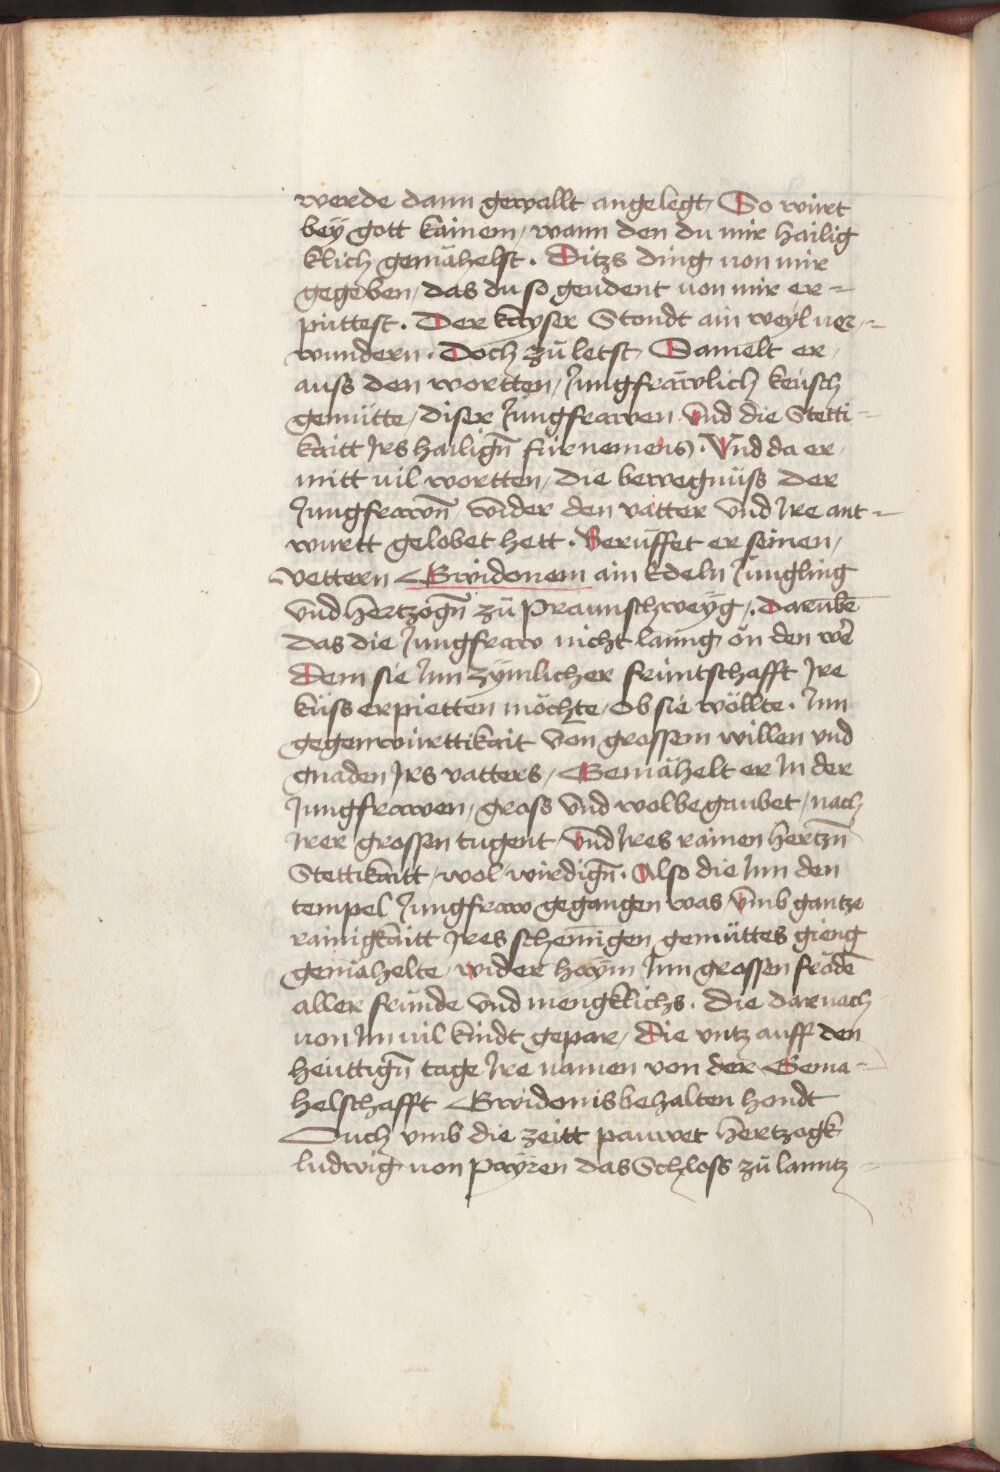 werde dann gewallt angelegt So wirt
bey gott kainem / wann den du mir hailig
klich gemähelst . Ditzs ding von mir
gegeben / das du so geudent von mir er =
pittest . Der kayser Stondt ain weyl ver =
wundern . Doch zů letst Samelt er /
auss den wortten / Jungfräwlich keüsch
gemütte / diser Jungfrawen Vnd die Stetti =
kaitt Jrs hailigñ fürnemens . Vnd da er /
mitt vil wortten / die bewegnüss der
Jungfrawñ wider den vatter vnd Jre ant =
wurtt gelobet hett . Berüffet er seinen /
vettern Gwidonem ain Edeln Jüngling
vnd Hertzogñ zů Praunschweyg / . Darübē
das die Jungfraw nicht lanng ön den wē
Dem sie Jnn zÿmlicher früntschafft Jre
küss erpietten möchte / ob sie wöllte . Jnn
gegenwürttikait von grossem willen vnd
gnaden Jrs vatters / Gemähelt er Jn der
Jungfrawen / gross vnd wolbegaubet / nach
Jrer grossen tugent Vnd Jres rainen hertzñ
Stettikaitt / wol wirdigñ . Also die Jnn den
tempel Jungfraw gegangen was / Vmb gantze
rainigkaitt Jres schemigen gemüttes gieng
gemähelte / wider haÿm Jnn grossen frädē
aller fründe vnd mengklichs . die darnach
von Jm vil kindt gepar / Die vntz auff den
heüttigñ tage Jre namen von der Gema =
helschafft Gwidonis behalten hondt
Auch vmb die zeitt pauwet Hertzogk
ludwig von Payren das Schloss zů lanntz =